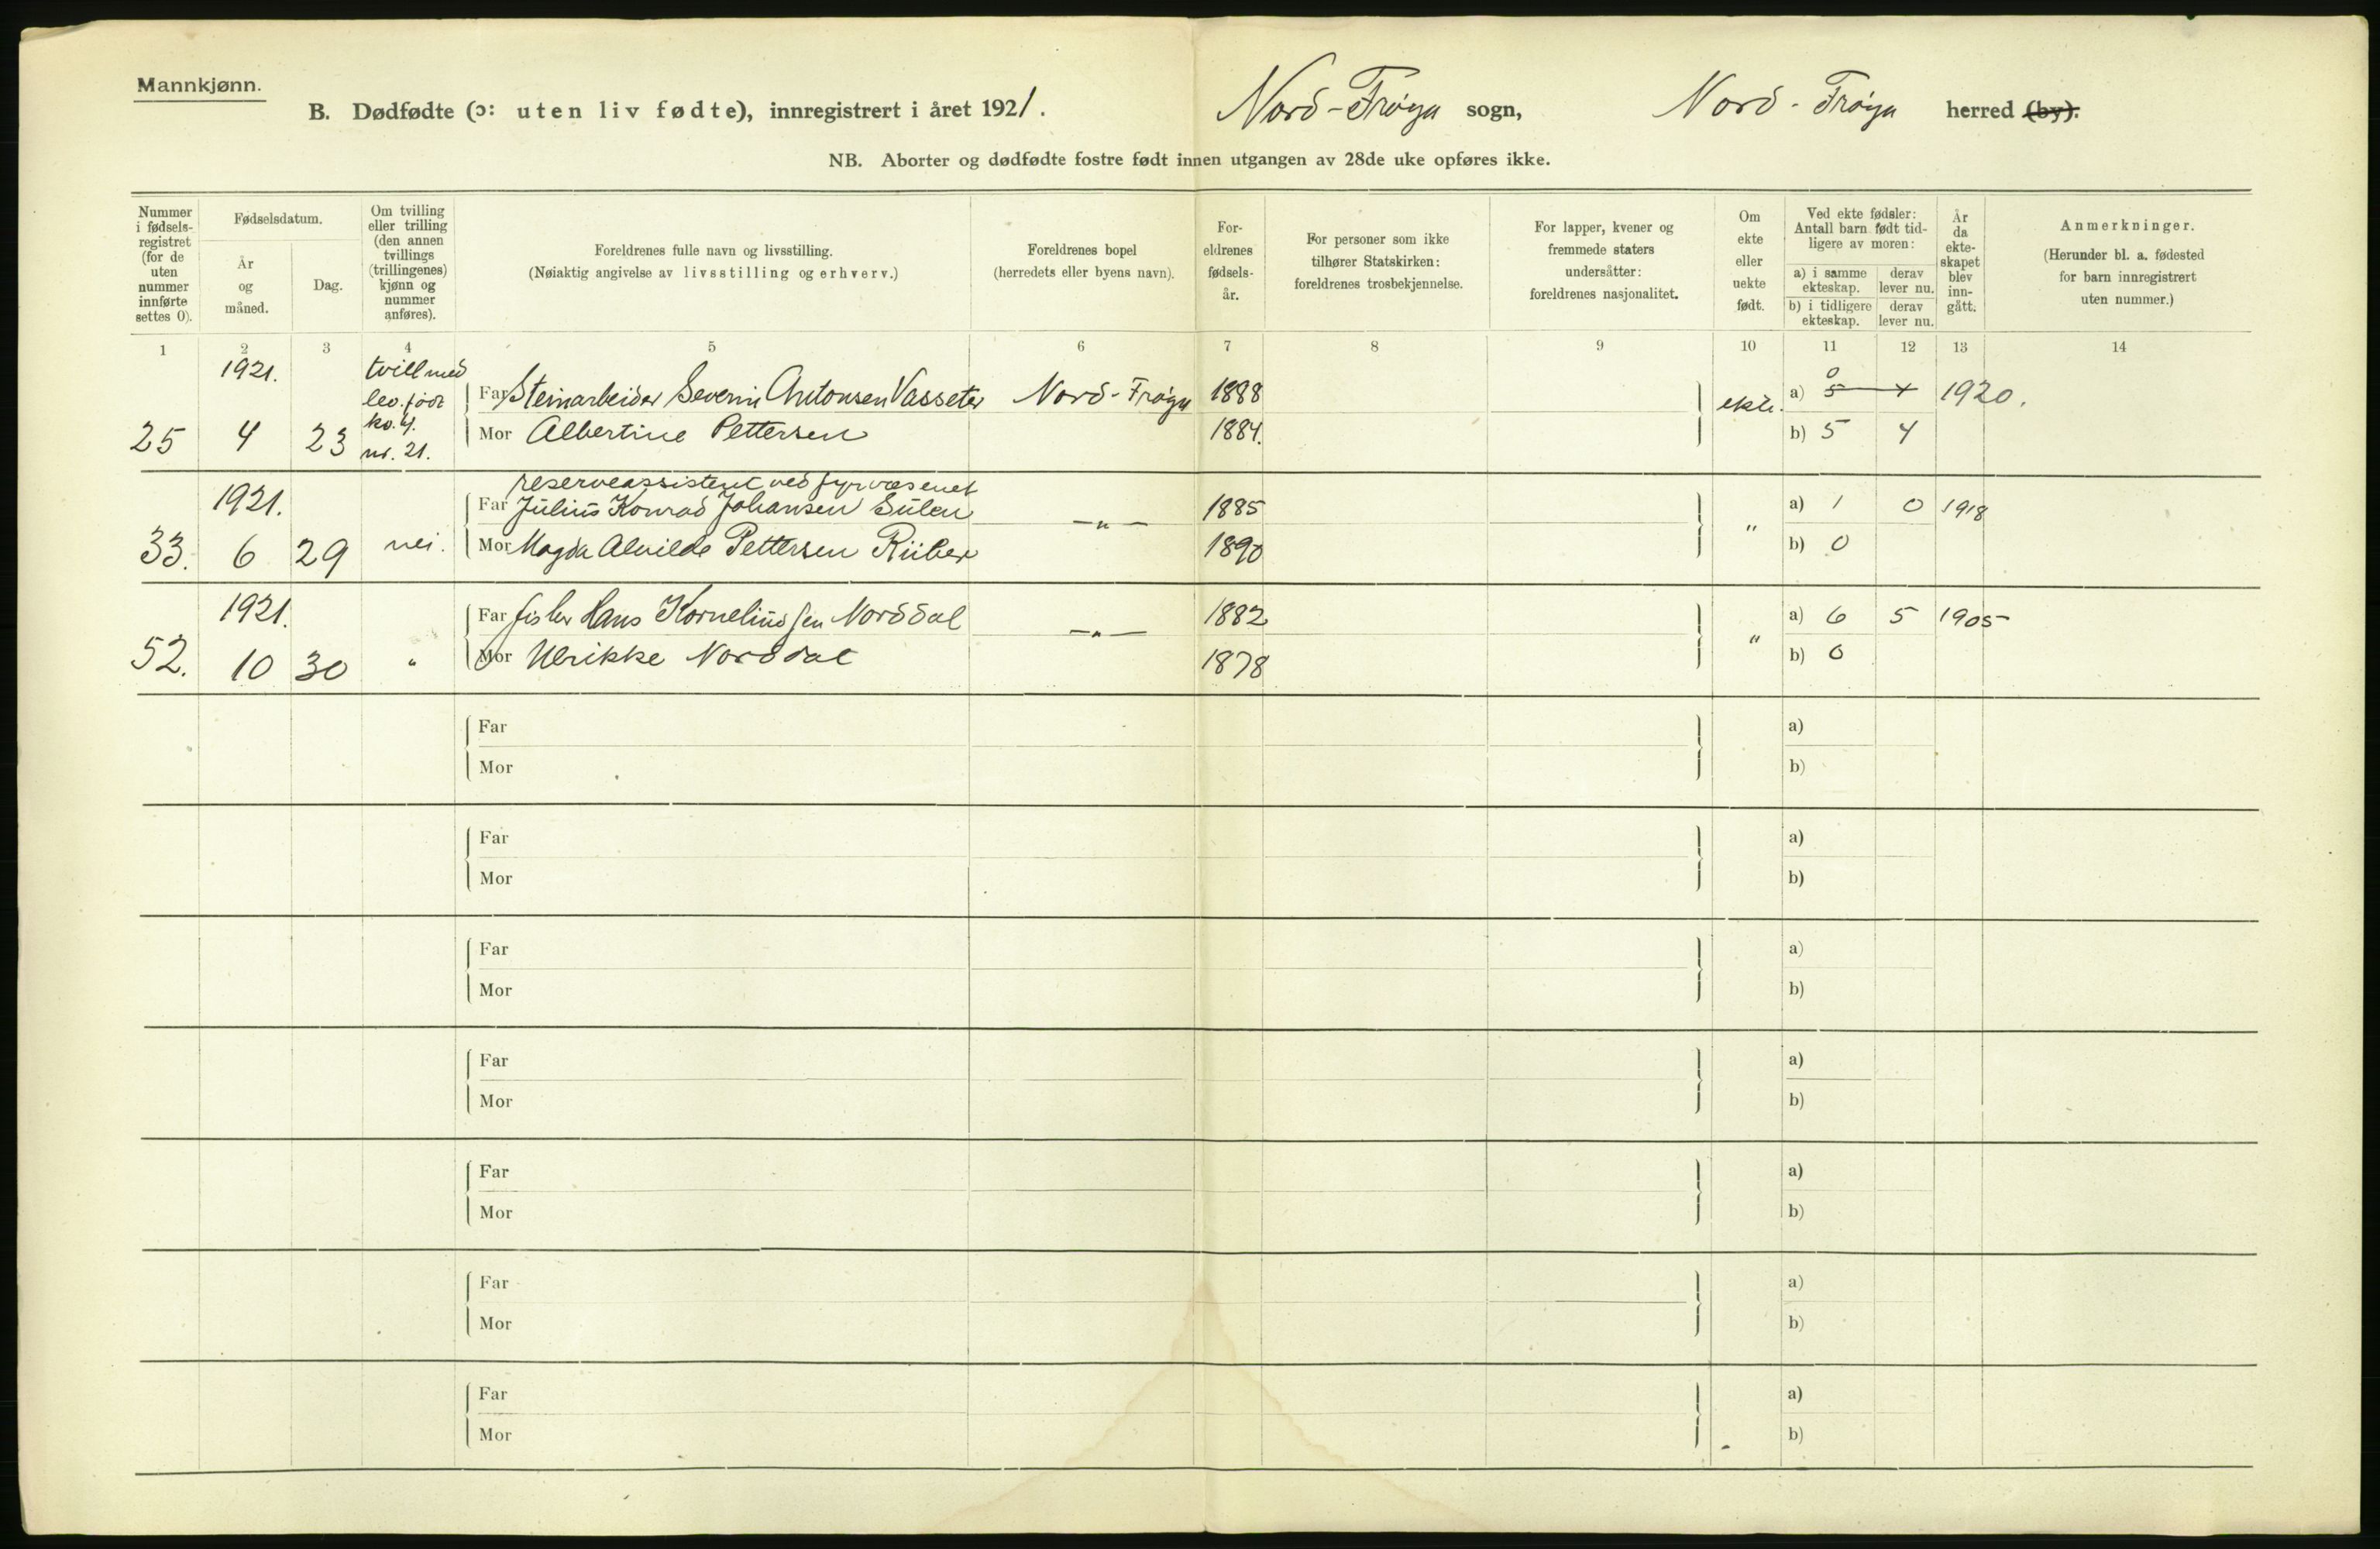 Mannkjønn.
B. Dødfødte (ɔ: uten liv fødte), innregistrert i året 1921. Nord-Frøya sogn, Nord-Frøya herred (by).
NB. Aborter og dødfødte fostre født innen utgangen av 28de uke opføres ikke.
Nummer i fødsels-registret (for de uten nummer innførte settes 0).
Fødselsdatum.
År og måned.
Dag.
Om tvilling eller trilling (den annen tvillings (trillingenes) kjønn og nummer anføres).
Foreldrenes fulle navn og livsstilling.
(Nøiaktig angivelse av livsstilling og erhverv.)
Foreldrenes bopel
(herredets eller byens navn).
For-eldrenes fødsels-år.
For personer som ikke tilhører Statskirken: foreldrenes trosbekjennelse.
For lapper, kvener og fremmede staters undersåtter: foreldrenes nasjonalitet.
Om ekte eller uekte født.
Ved ekte fødsler: Antall barn født tid-ligere av moren:
a) i samme ekteskap.
derav lever nu.
b) i tidligere ekteskap.
derav lever nu.
År da ekte-skapet blev inn-gått.
Anmerkninger.
(Herunder bl. a. fødested for barn innregistrert uten nummer.)
1 2 3 4 5 6 7 8 9 10 11 12 13 14
1921. tvill med 0
lev. født Far Steinarbeider Severin Antonsen Vasseter Nord-Frøya 1888 ekte. a) 5 4 1920.
25 4 23 kv. 4. nr. 21. Mor Albertine Pettersen 1884. b) 5 4
reserveassistent ved fyrvæsenet
1921. Far Julius Konrad Johansen Sulen —"— 1885 " a) 1 0 1918
33. 6 29 nei. Mor Magda Alvilde Pettersen Riiber 1890 b) 0
1921. Far fisker Hans Korneliussen Norddal —"— 1882 " a) 6 5 1905
52. 10 30 " Mor Ulrikke Norddal 1878 b) 0
Far a)
Mor b)
Far a)
Mor b)
Far a)
Mor b)
Far a)
Mor b)
Far a)
Mor b)
Far a)
Mor b)
Far a)
Mor b)